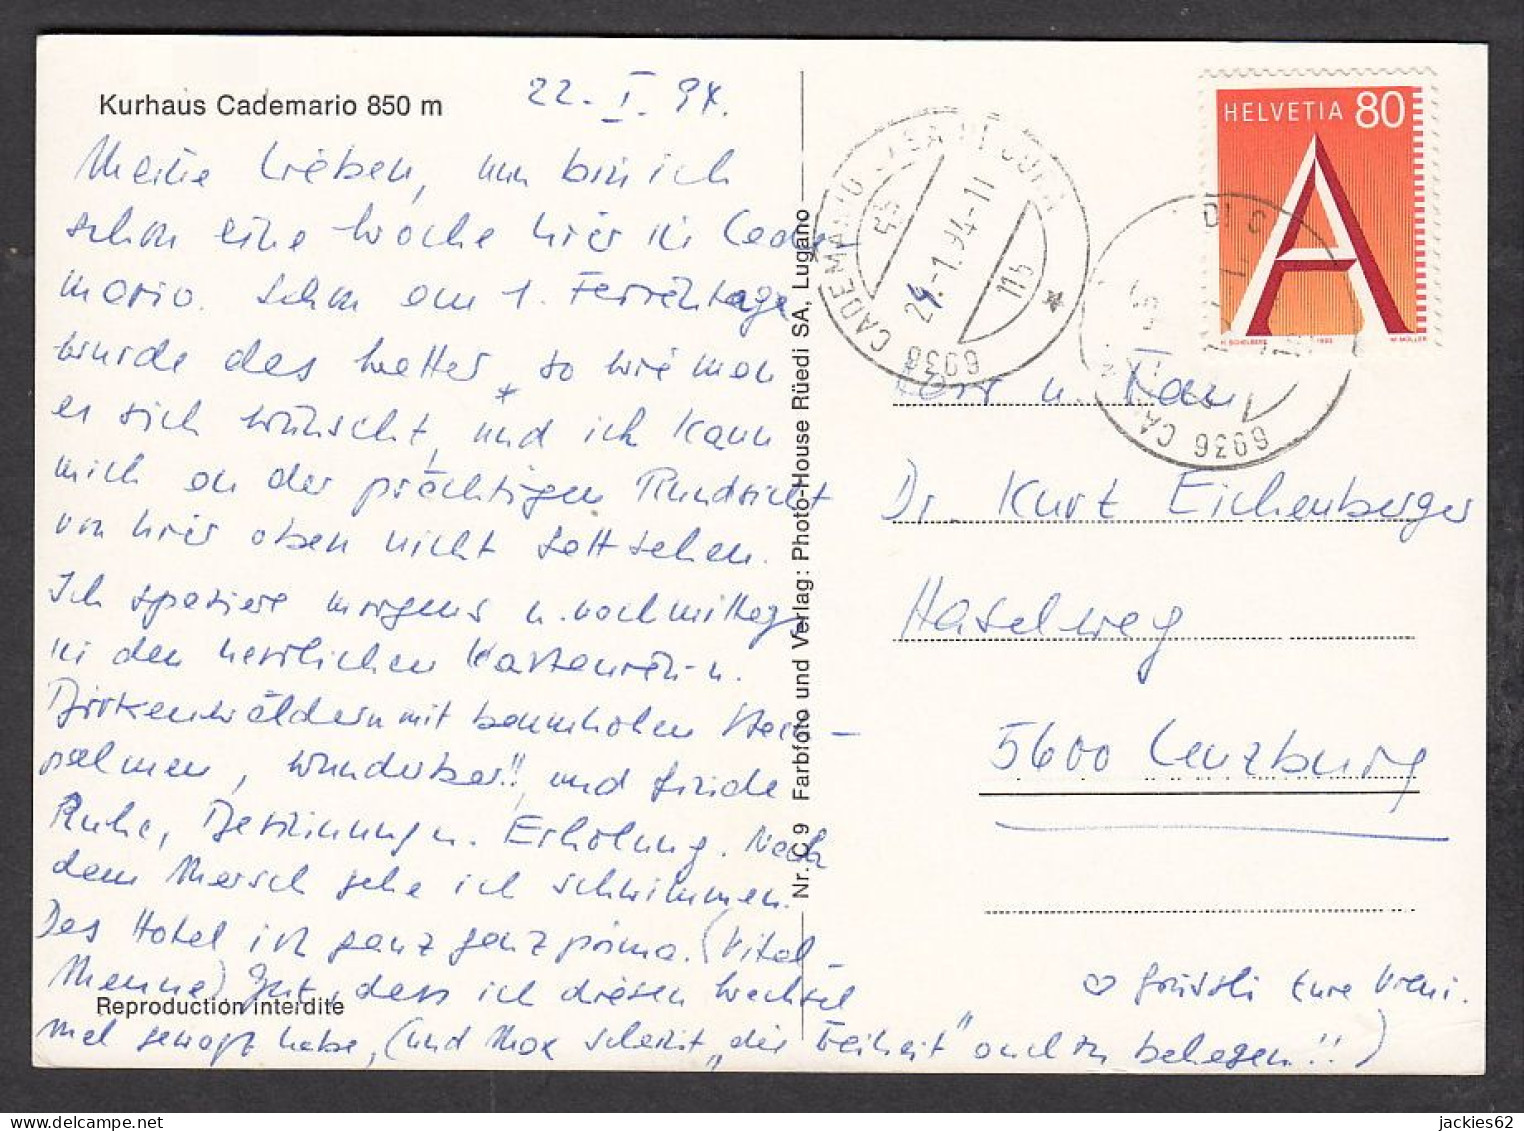 Kurhaus Cademario 850 m
22. I. 94.
Meine Lieben, nun bin ich
schon eine Woche hier in Cade-
mario. Schon am 1. Ferientage
wurde das Wetter, so wie man
es sich wünscht, und ich kann
mich an der prächtigen Rundsicht
von hier oben nicht sattsehen.
Ich spaziere morgens u. nachmittag
in den herrlichen Kastanien- u.
Birkenwäldern mit baumhohen
palmen, wunderbar!!, und finde
Ruhe, Besinnung u. Erholung. Nach
dem Marsch gehe ich schwimmen.
Das Hotel ist ganz ganz prima. (Vital-
Menue) Gut, dass ich diesen Wechsel
mal gewagt habe, (und Max scheint „die Freiheit" auch zu behagen!!)
Reproduction interdite
Nr. C 9 Farbfoto und Verlag: Photo-House Rüedi SA, Lugano
HELVETIA 80
A
H. SCHELBERT 1993 M. MÜLLER
6936 CADEMARIO CASA DI CURA
24.-1.94-11
6936 CA
DI C
Herr u. Frau
Dr. Kurt Eichenberger
Haselweg
5600 Lenzburg
♡ Grüssli Eure Vreni.
jackies62